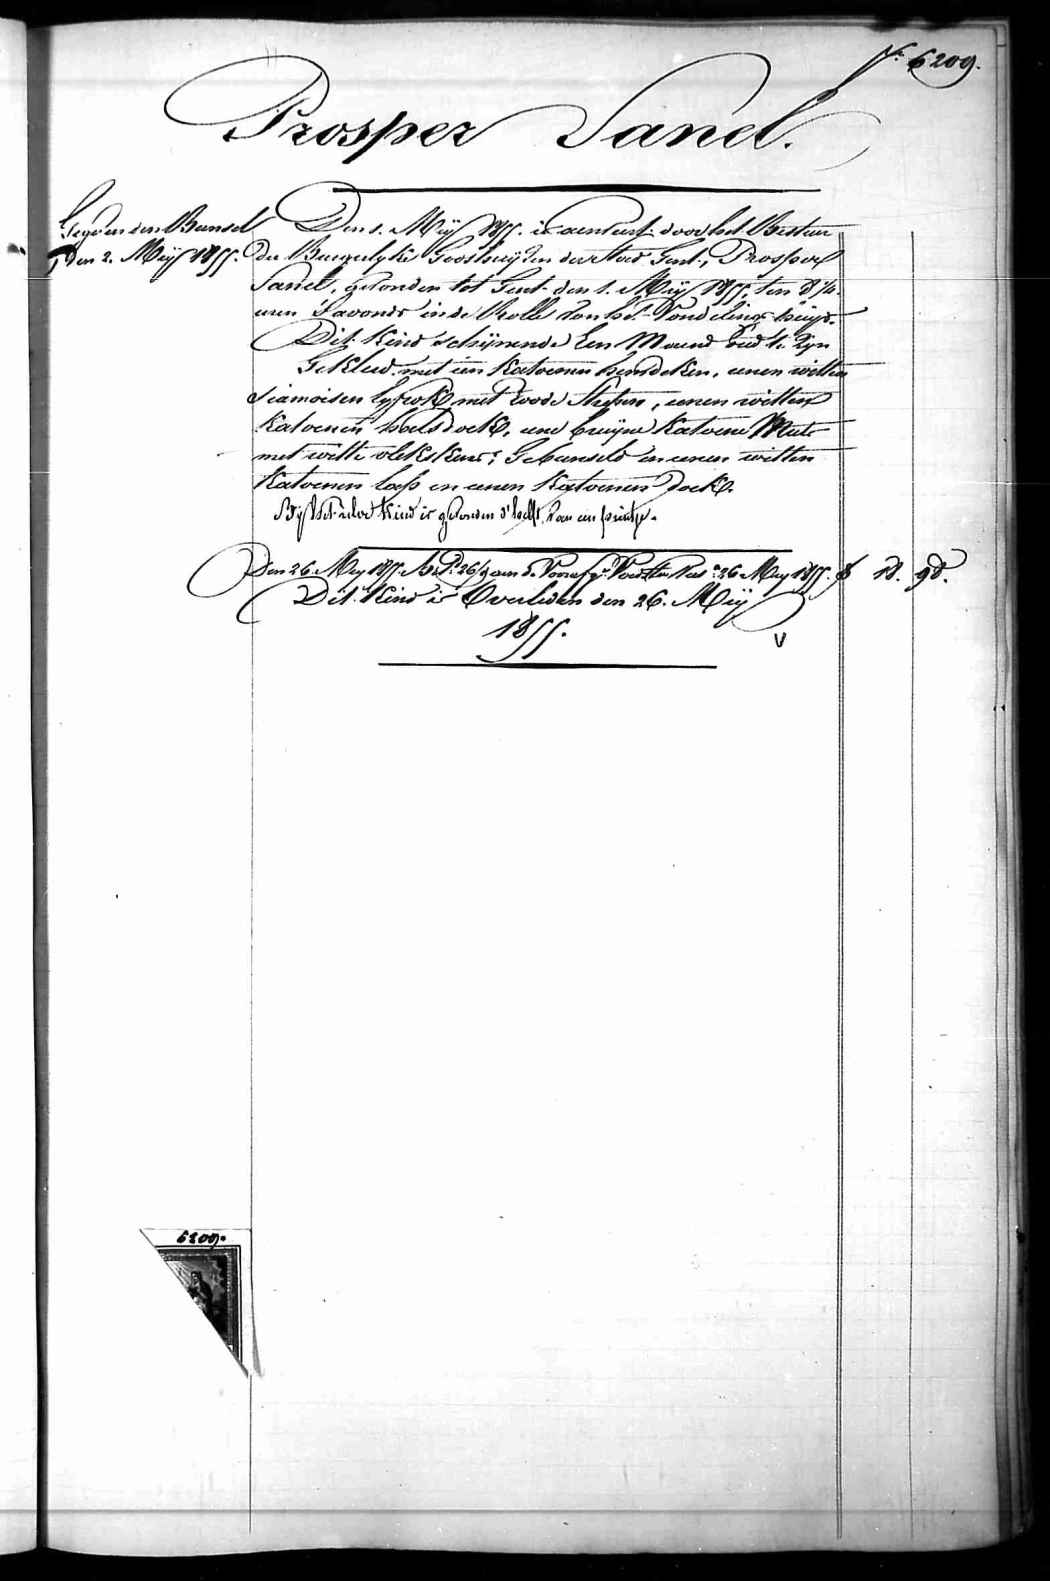 N.º 6209.
Prosper Sanel.
Gegeven den Bunsel
Den 2. Meij 1855.
Den 1. Meij 1855. is aenveert door het Bestuer
der Burgerlyke Godshuijzen der stad Gent, Prosper
Sanel, gevonden tot Gent den 1. Meij 1855, ten 8
uren 's avonds in de Rolle van het Vondelings huijs.
Dit Kind schijnende Een Maend oud te Zyn
Gekleed met een Katoenen hemdeken, eenen witten
siamoisen lyfrok met Roode Strepen, eenen witten
Katoenen halsdoek, eene bruijne Katoene Muts
met witte vlekskens; Gebunseld in eenen witten
Katoenen lap en eenen Katoenen Doek.
Bij het zelve Kind is gevonden d'helft van een printje.
Den 26. Mey 1855. 26/9 aen de 26 Mey 1855. 9d.
Dit Kind is Overleden den 26. Meij
1855.
V
6209.